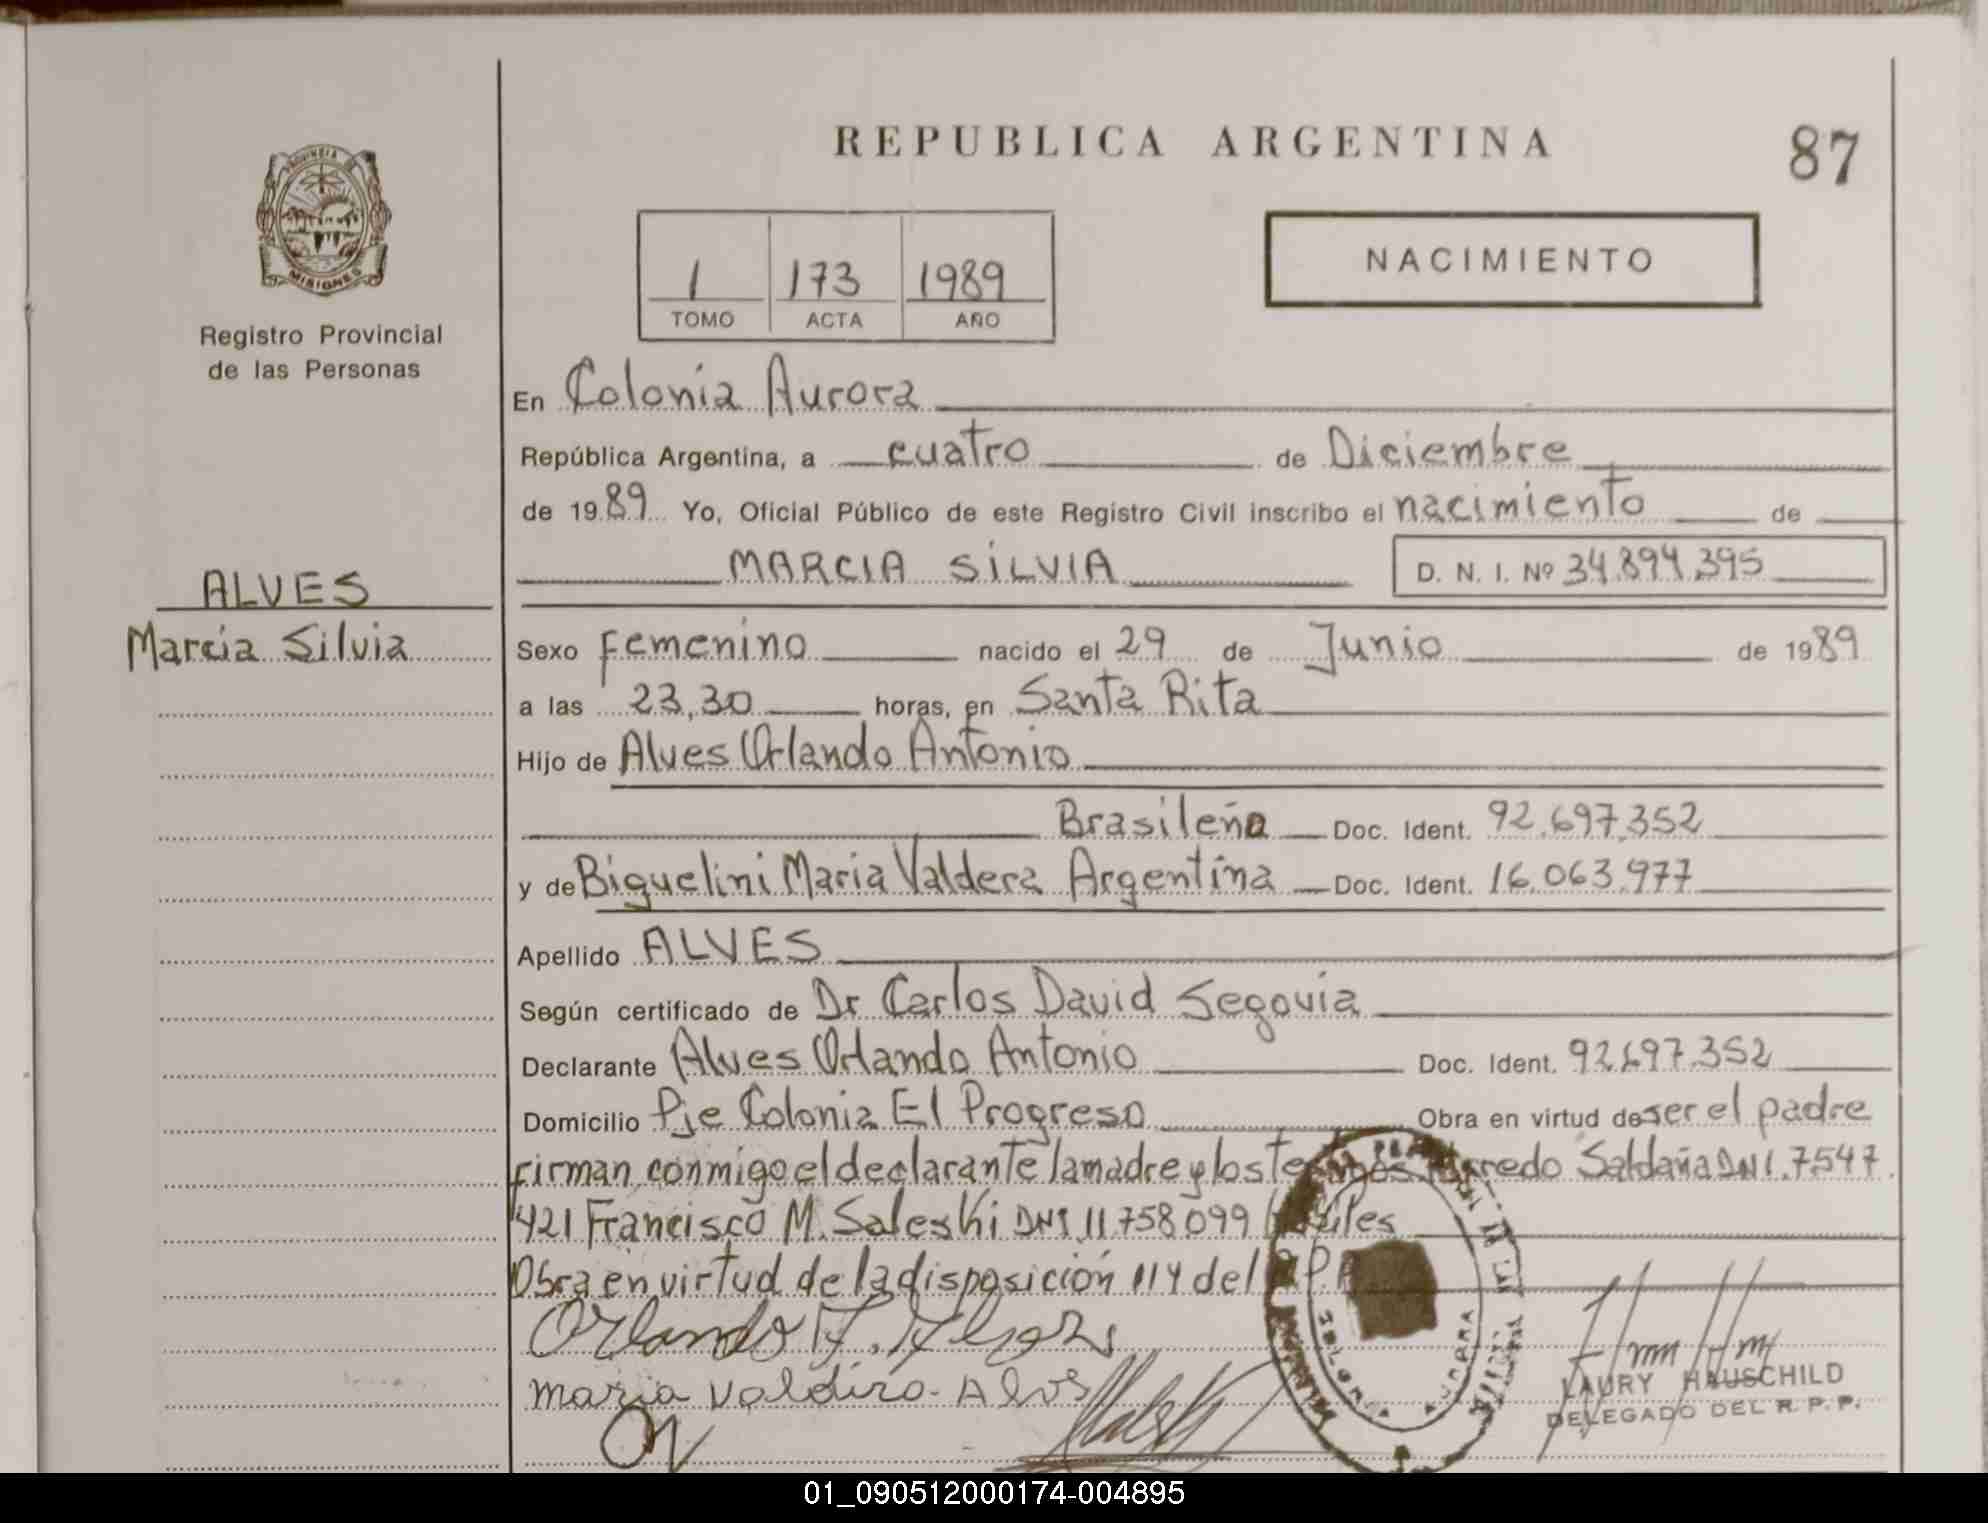 REPUBLICA ARGENTINA
87
PROVINCIA DE
MISIONES
Registro Provincial
de las Personas
1 173 1989
TOMO ACTA AÑO
NACIMIENTO
En Colonia Aurora
República Argentina, a cuatro de Diciembre
de 1989 Yo, Oficial Público de este Registro Civil inscribo el nacimiento de
MARCIA SILVIA D. N. I. Nº 34.894.395
ALVES
Marcia Silvia
Sexo Femenino nacido el 29 de Junio de 1989
a las 23,30 horas, en Santa Rita
Hijo de Alves Orlando Antonio
Brasileño Doc. Ident. 92.697.352
y de Biguelini Maria Valdera Argentina Doc. Ident. 16.063.977
Apellido ALVES
Según certificado de Dr Carlos David Segovia
Declarante Alves Orlando Antonio Doc. Ident. 92.697.352
Domicilio Pje Colonia El Progreso Obra en virtud de ser el padre
firman conmigo el declarante la madre y los Saldaña DNI.7547.
421 Francisco M. Saleski DNI 11.758.099
Obra en virtud de la disposición 114 del
Orlando A. Alves
maria valdira Alves
COLONIA AURORA
LAURY HAUSCHILD
DELEGADO DEL R. P. P.
01_090512000174-004895